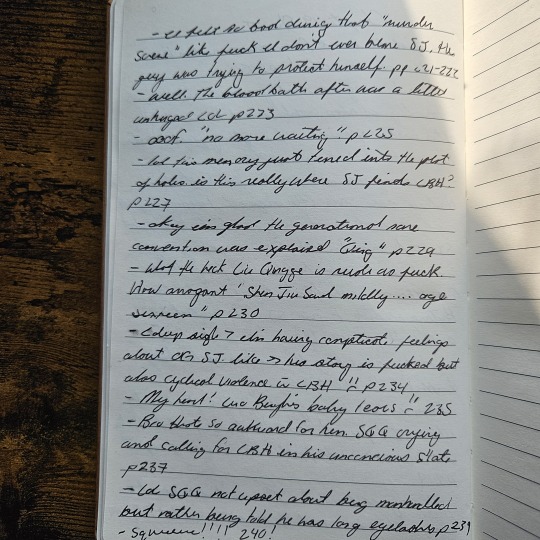 - I felt so bad during that "murder
scene" like fuck I don't even blame SJ, the
guy was trying to protect himself. pp 221-222
- well. The bloodbath after was a little
unhinged lol p223
- oof. "no more waiting" p225
- lol his memory just turned into the plot
of holes is this really where SJ finds LBH?
p227
- okay im glad the generational name
convention was explained "Qing" p229
- What the heck Liu Qingge is rude as fuck
How arrogant "Shen Jiu Said mildly.... age
sixteen" p230
- Deep sigh > im having complicated feelings
about OG SJ like > his story is fucked but
also cyclical violence w LBH !! p234
- My heart! Luo Binghe's baby tears 235
- Bro thats so awkward for him. SQQ crying
and calling for LBH in his unconcious state
p237
- lol SQQ not upset about being manhandled
but rather being told he has long eyelashes p239
- Squueee!!!! 240!